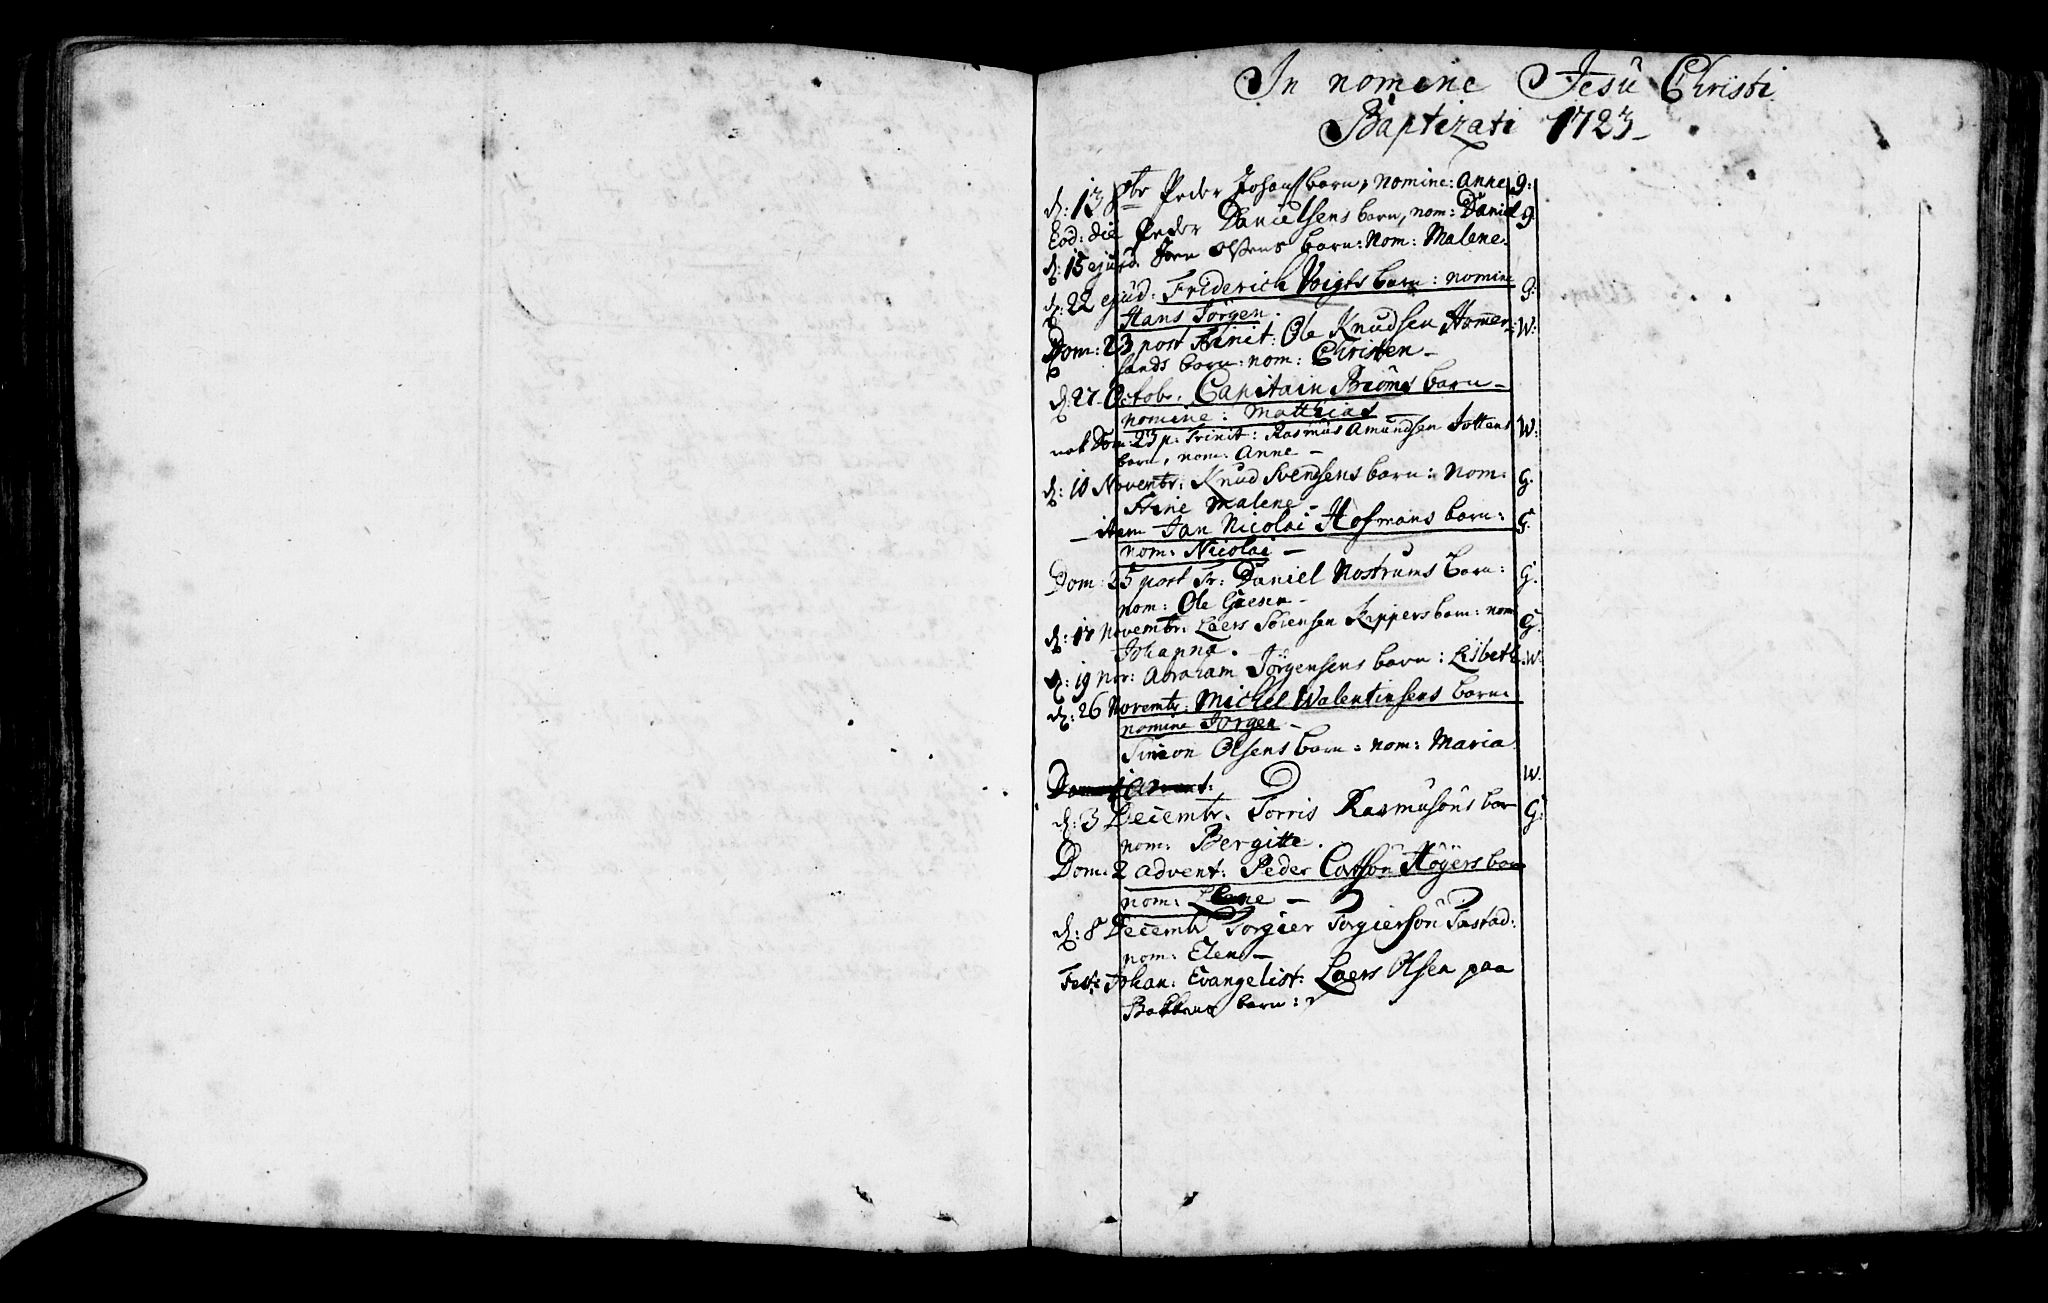 In nomine Jesu Christi
Baptizati 1723
d: 13 8tbr Peder Johans barn, nomine: Anne G:
Eod: die Peder Danielsens barn, nom: Daniel G
d: 15 ejusd. barn: Nom: Malene.
d: 22 ejusd: Friderich Voigts barn: nomine G:
Hans Jörgen.
Dom: 23 post Trinit: Ole Knudsen Homer= W:
lands barn: nom: Christen -
d: 27 Octobr. Capitain barn -
nomine: Matthias
nok Dom 23 p. Trinit: Rasmus Amundsen W:
barn, nom: Anne -
d: 10 Novembr: Knud Svendsens barn: Nom: G.
Trine Malene -
- item Jan Nicolai Hofmans barn: G.
nom: Nicolai -
Dom: 25 post Tr: Daniel Nostrums barn: G.
nom: Ole -
d: 17 Novembr: Laers Sörensen Kippers barn: nom G.
Johanna.
d: 19 Nov: Abraham Jörgensens barn: Lisbeth W.
d: 26 Novembr: Michel Walentinsens barn:
nomine Jorgen -
Simon Olsens barn: nom: Maria.
Advent: W.
d: 3 Decembr. Torris Rasmusöns bar G:
nom: Bergitte.
Dom: 2 advent: Peder Höÿers bar
nom: -
d: 8 Decembr Torgier Torgiersön
nom: Elen -
Fest: Johan: Evangelist: Laers Olsen paa
Bakkens barn: